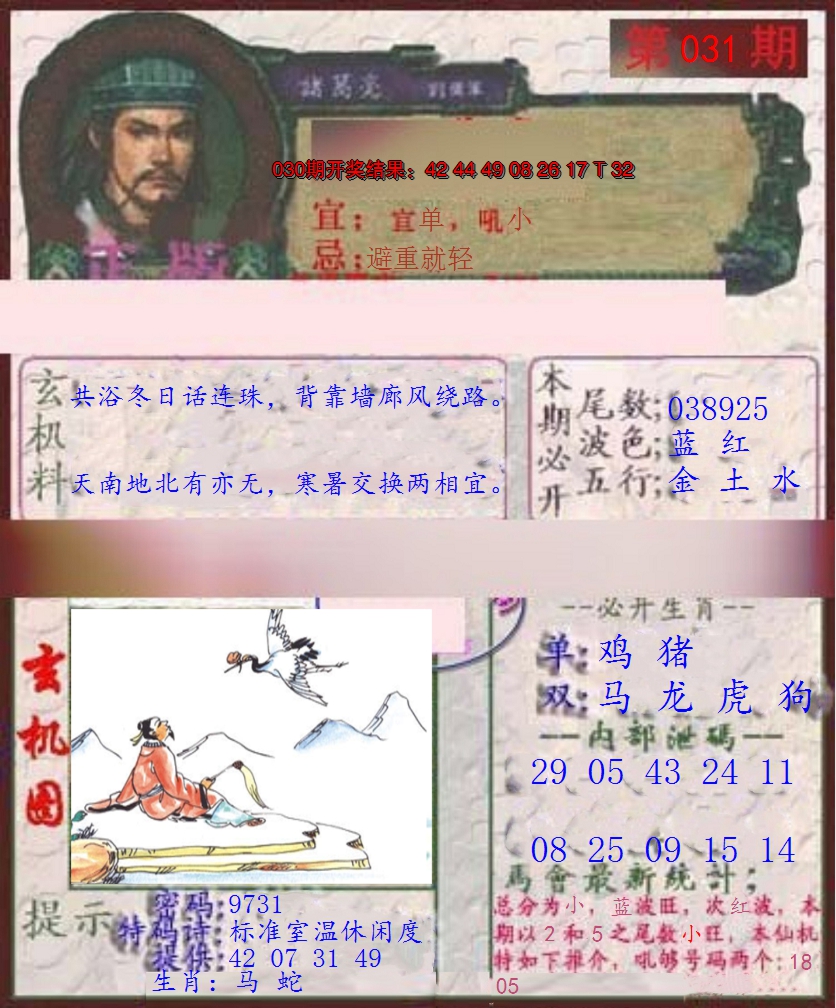 第 031 期
諸葛亮
030期开奖结果：42 44 49 08 26 17 T 32
宜：宜单，吼小
忌：避重就轻
正版
玄机料
共浴冬日话连珠，背靠墙廊风绕路。
天南地北有亦无，寒暑交换两相宜。
本期必开
尾数;038925
波色;蓝 红
五行;金 土 水
玄机图
--必开生肖--
单:鸡 猪
双:马 龙 虎 狗
--内部泄碼--
29 05 43 24 11
08 25 09 15 14
馬會最新統計；
总分为小，蓝波旺，次红波，本
期以2和5之尾数小旺，本仙机
特如下推介，吼够号码两个:18
05
提示
密码:9731
特码诗:标准室温休闲度
提供:42 07 31 49
生肖：马 蛇